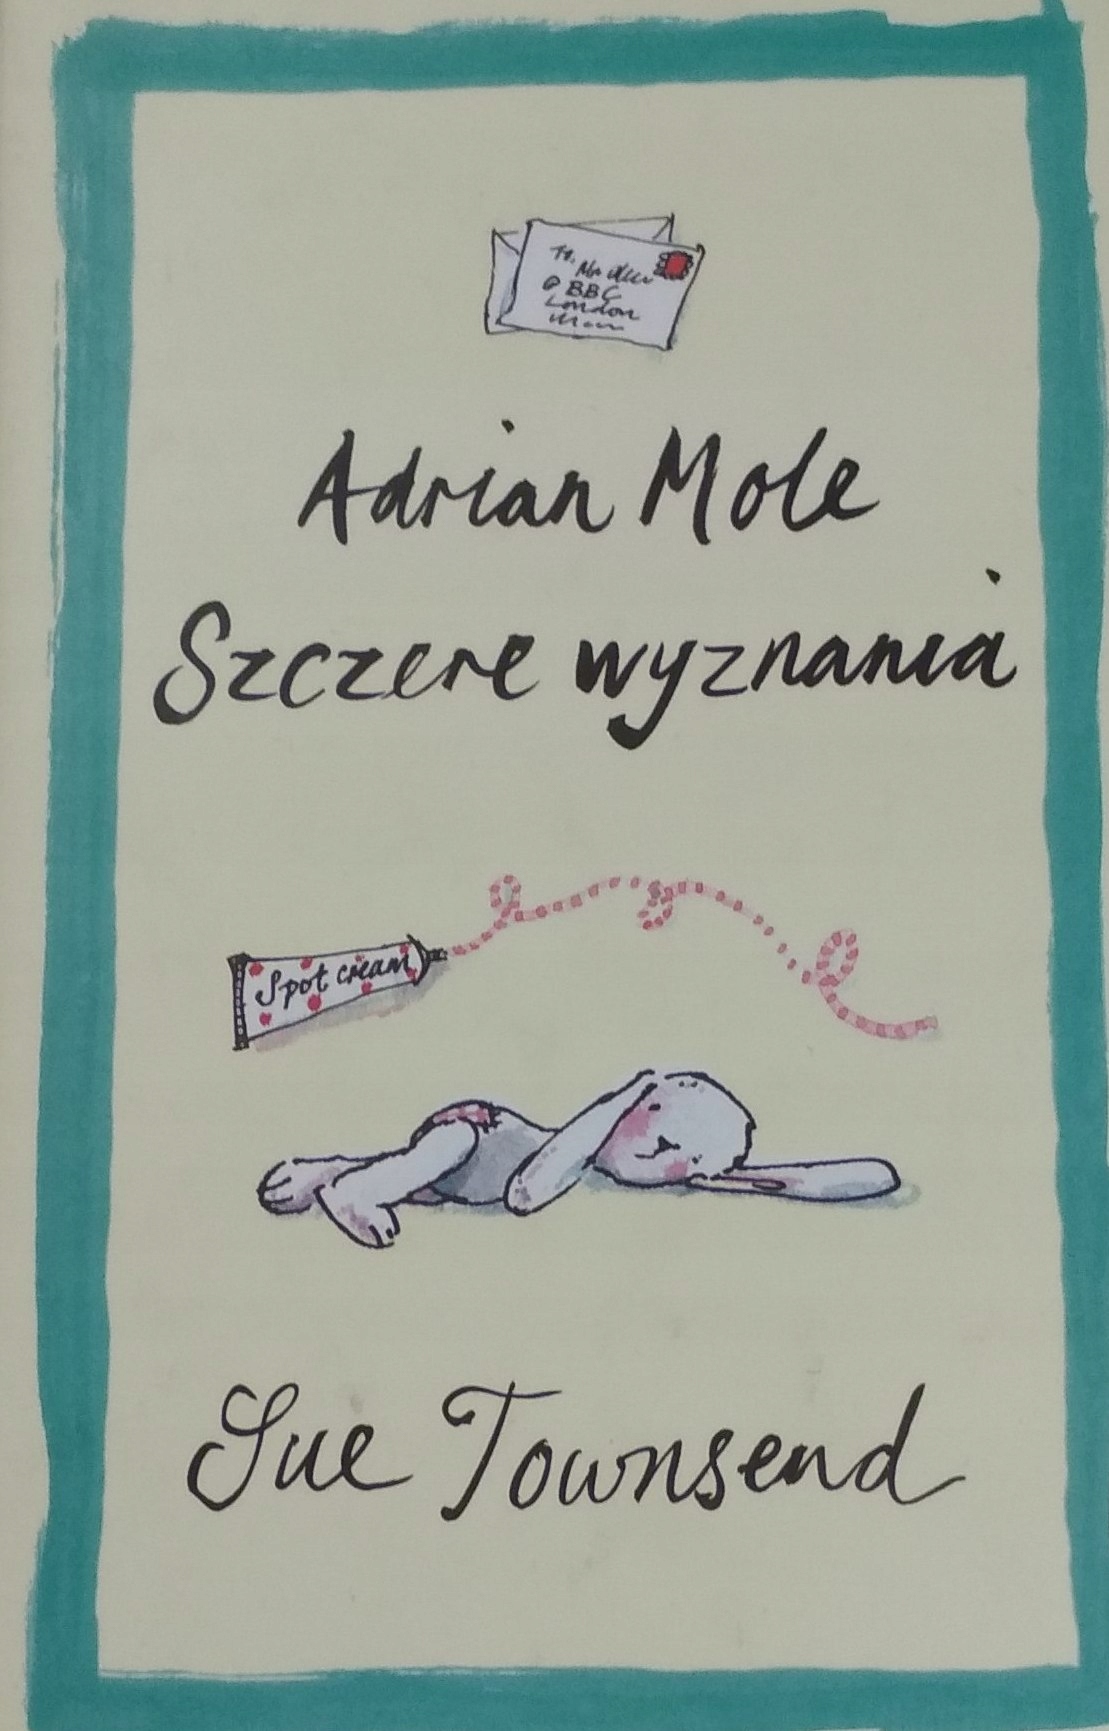 To.
Mr
@ BBC
London
Adrian Mole
Szczere wyznania
Spot cream
Sue Townsend